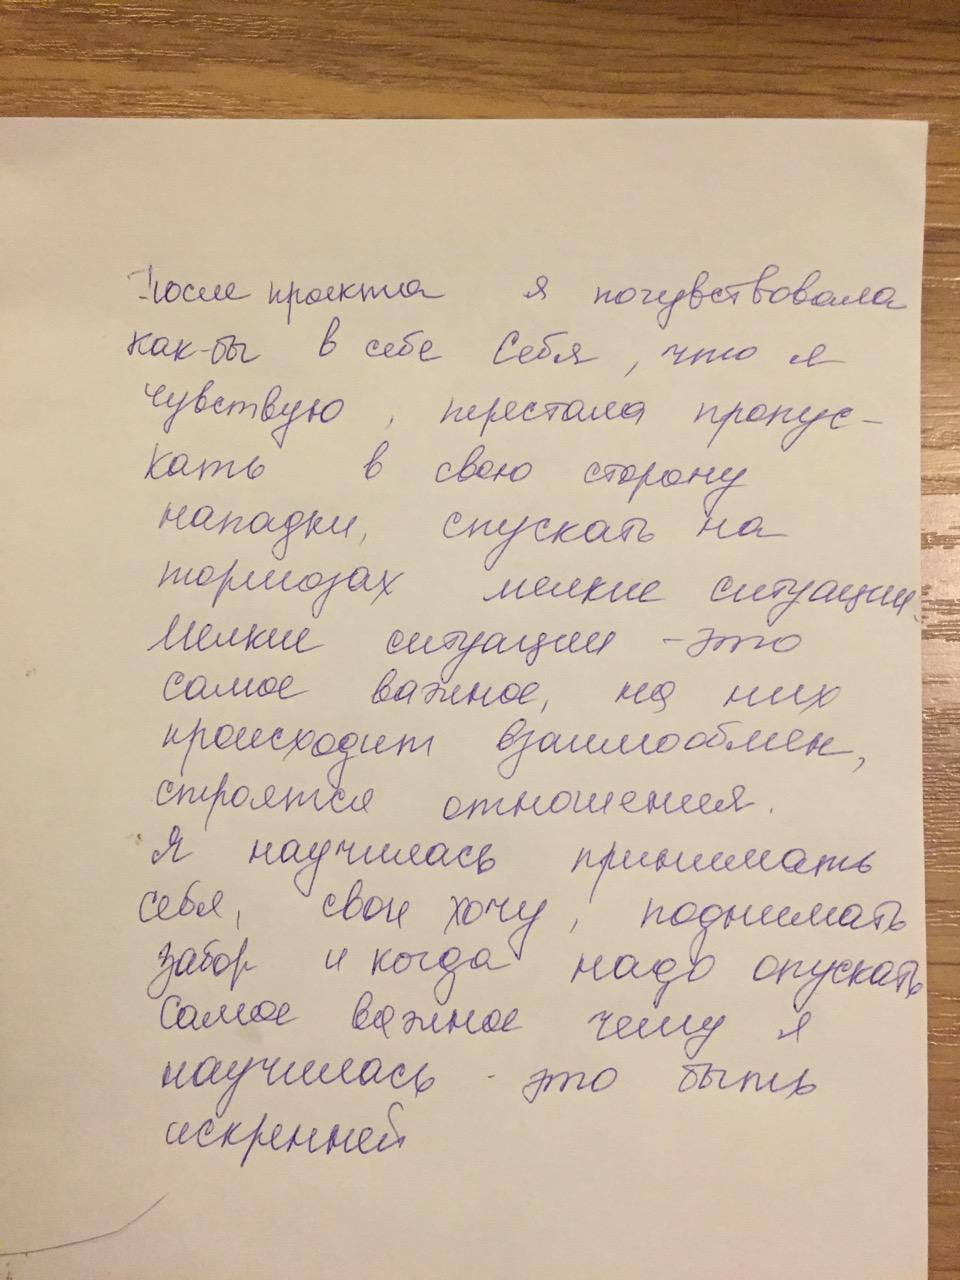 После проекта я почувствовала
как-бы в себе Себя, что я
чувствую, перестала пропус-
кать в свою сторону
нападки, спускать на
тормозах мелкие ситуации.
Мелкие ситуации - это
самое важное, на них
происходит взаимообмен,
строятся отношения.
Я научилась принимать
себя, свои хочу, поднимать
забор и когда надо опускать
Самое важное чему я
научилась - это быть
искренней